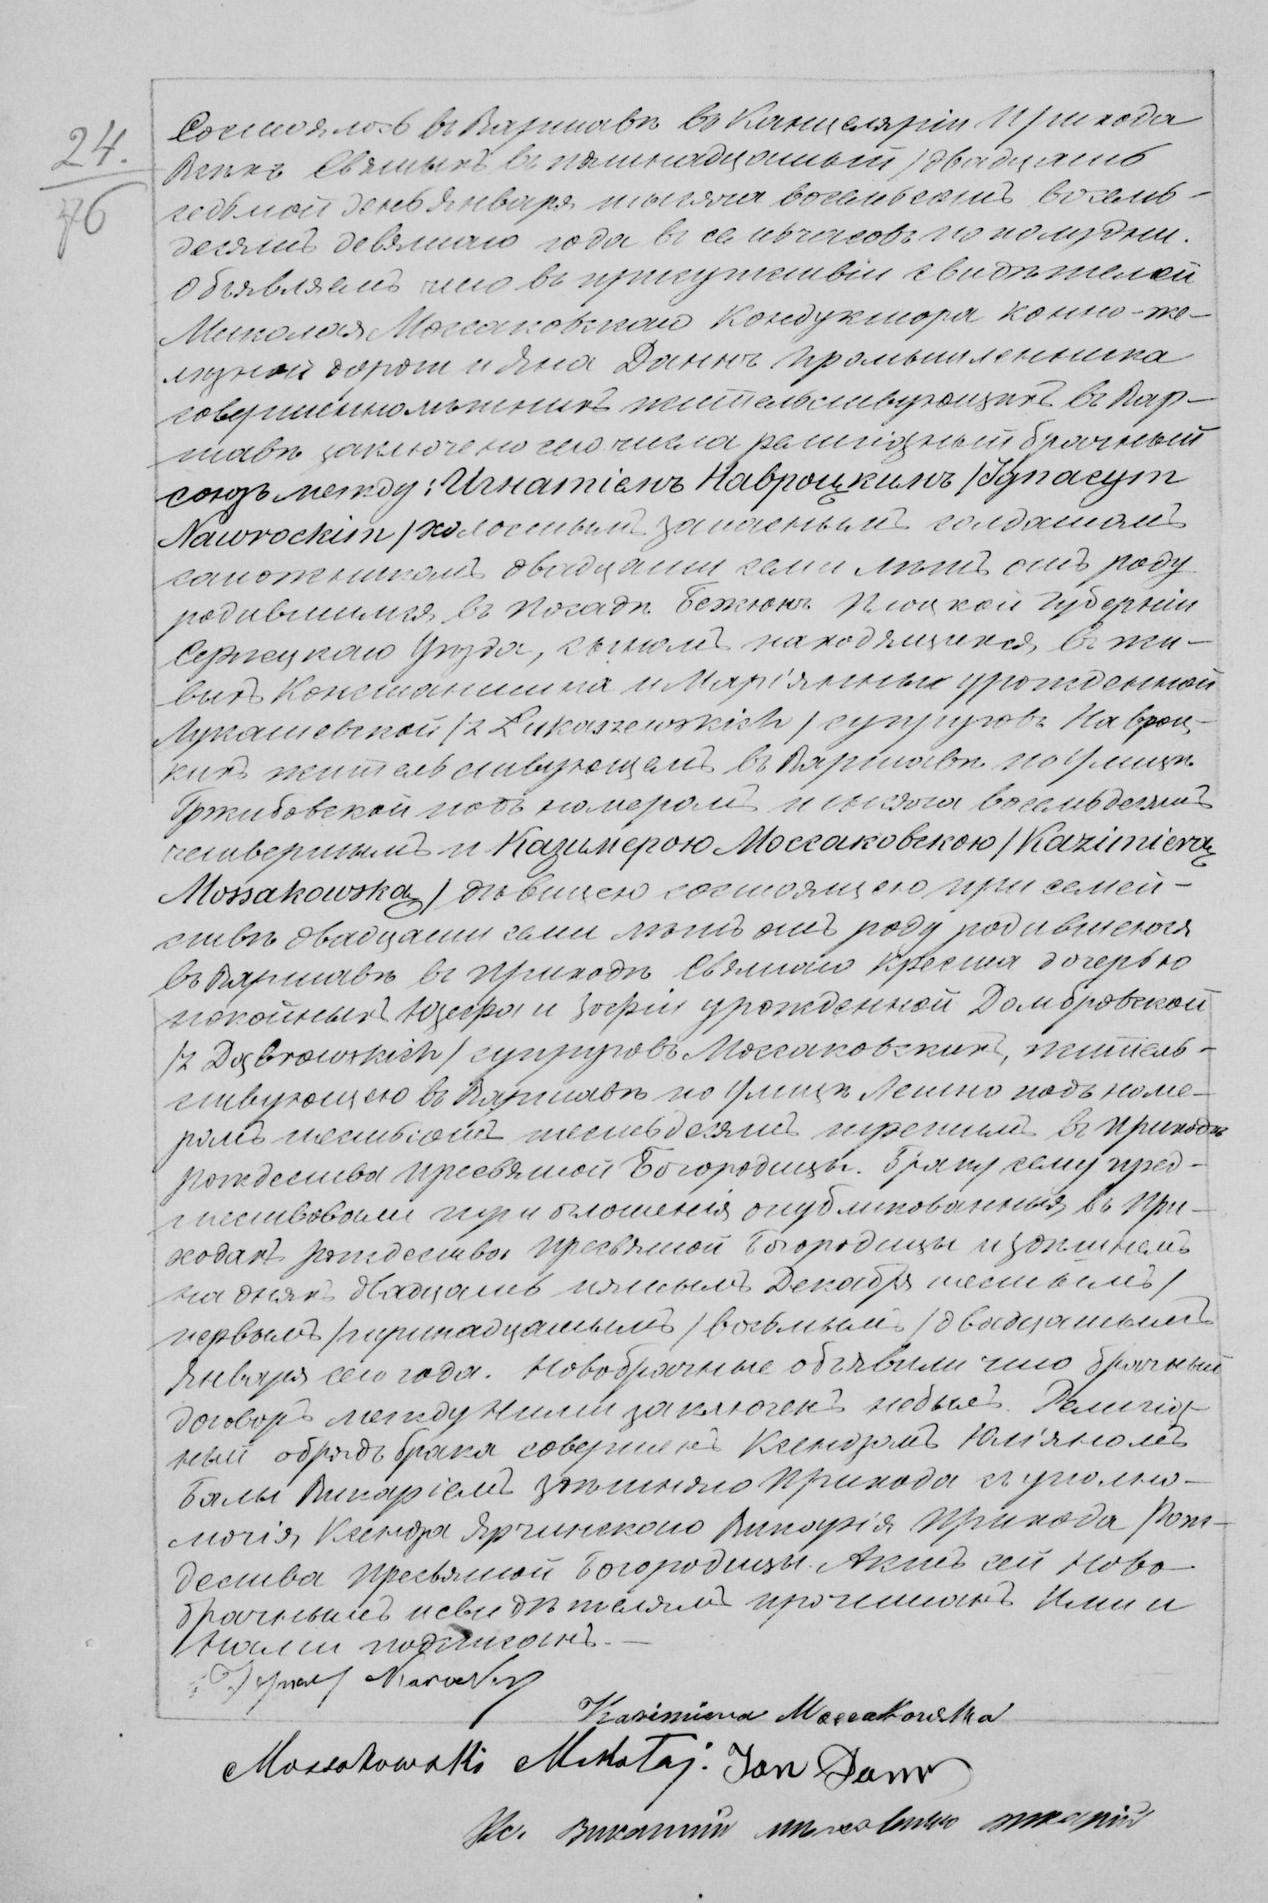 24.
76
Состоялось въ Варшавѣ въ Канцеляріи Прихода
Всѣхъ Святыхъ въ пятнадцатый / двадцать
седьмой день Января тысяча восемьсотъ восемь-
десятъ девятаго года въ семь часовъ по полудни.
Объявляемъ что въ присутствіи свидѣтелей
Миколая Моссаковскаго Кондуктора конно-же-
лѣзной дороги и Яна Даннъ промышленника
совершеннолѣтнихъ жительствующихъ въ Вар-
шавѣ заключено сего числа религіозный брачный
союзъ между: Игнатіемъ Навроцкимъ / Ignacym
Nawrockim / холостымъ запаснымъ солдатомъ
сапожникомъ двадцати семи лѣтъ отъ роду
родившимся въ посадѣ Бежюнь Плоцкой Губерніи
Серпецкаго Уѣзда, сыномъ находящихся въ жи-
выхъ Константина и Маріянны урожденной
Лукашевской / z Łukaszewskich / супруговъ Навроц-
кихъ жительствующемъ въ Варшавѣ по улицѣ
Гржибовской подъ номеромъ тысяча восемьдесятъ
четвертымъ и Казимерою Моссаковскою / Kazimierą
Mossakowską / дѣвицею состоящею при семей-
ствѣ двадцати семи лѣтъ отъ роду родившеюся
въ Варшавѣ въ Приходѣ Святаго Креста дочерью
покойныхъ Юзефа и Зофіи урожденной Домбровской
/ z Dąbrowskich / супруговъ Моссаковскихъ, житель-
ствующею въ Варшавѣ по улицѣ Лешно подъ номе-
ромъ шестьсотъ шестьдесятъ третьимъ въ Приходѣ
Рождества Пресвятой Богородицы. Браку сему пред-
шествовали три оглашенія опубликованныя въ При-
ходахъ Рождества Пресвятой Богородицы и здѣшнемъ
на дняхъ двадцать пятымъ Декабря шестымъ /
первымъ / тринадцатымъ / восьмымъ / двадцатымъ
Января сего года. Новобрачные объявили что брачный
договоръ между ними заключенъ небылъ. Религіоз-
ный обрядъ брака совершенъ Ксендзомъ Юліяномъ
Бялы Викаріемъ здѣшняго Прихода съ уполно-
мочія Ксендза Ярчинскаго Викарія Прихода Рож-
дества Пресвятой Богородицы. Актъ сей Ново-
брачнымъ и свидѣтелямъ прочитанъ Ими и
Нами подписанъ. —
Ignacy Nawrocki
Kazimiera Mossakowska
Mossakowski Mikołaj. Jan Dann
Кс.